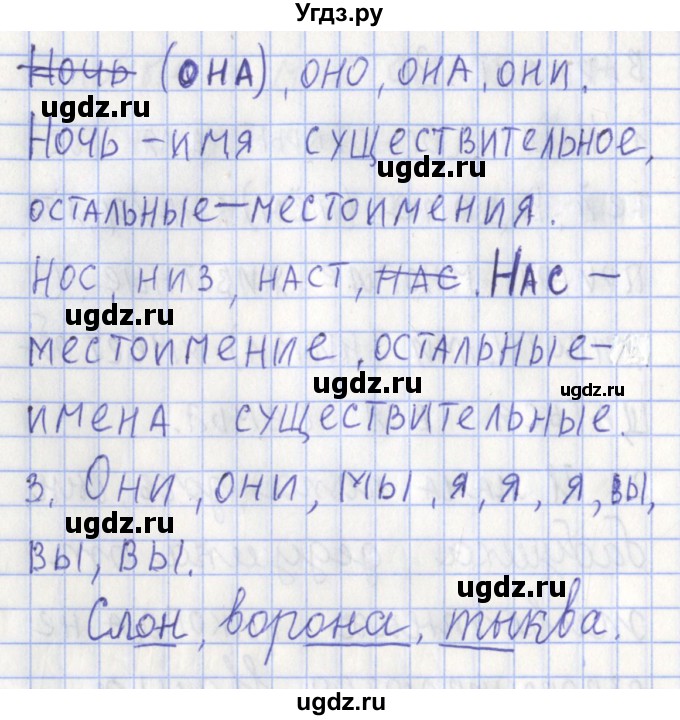 Угдз.ру
Ночь (она), оно, она, они.
ugdz.ru
ugdz.ru
Ночь – имя существительное,
ugdz.ru
остальные – местоимения.
Нос, низ, наст, нас. Нас –
ugdz.ru
местоимение, остальные –
ugdz.ru
ugdz.ru
имена существительные.
3. Они, они, мы, я, я, я, вы,
ugdz.ru
вы, вы.
ugdz.ru
Слон, ворона, тыква.
ugdz.ru